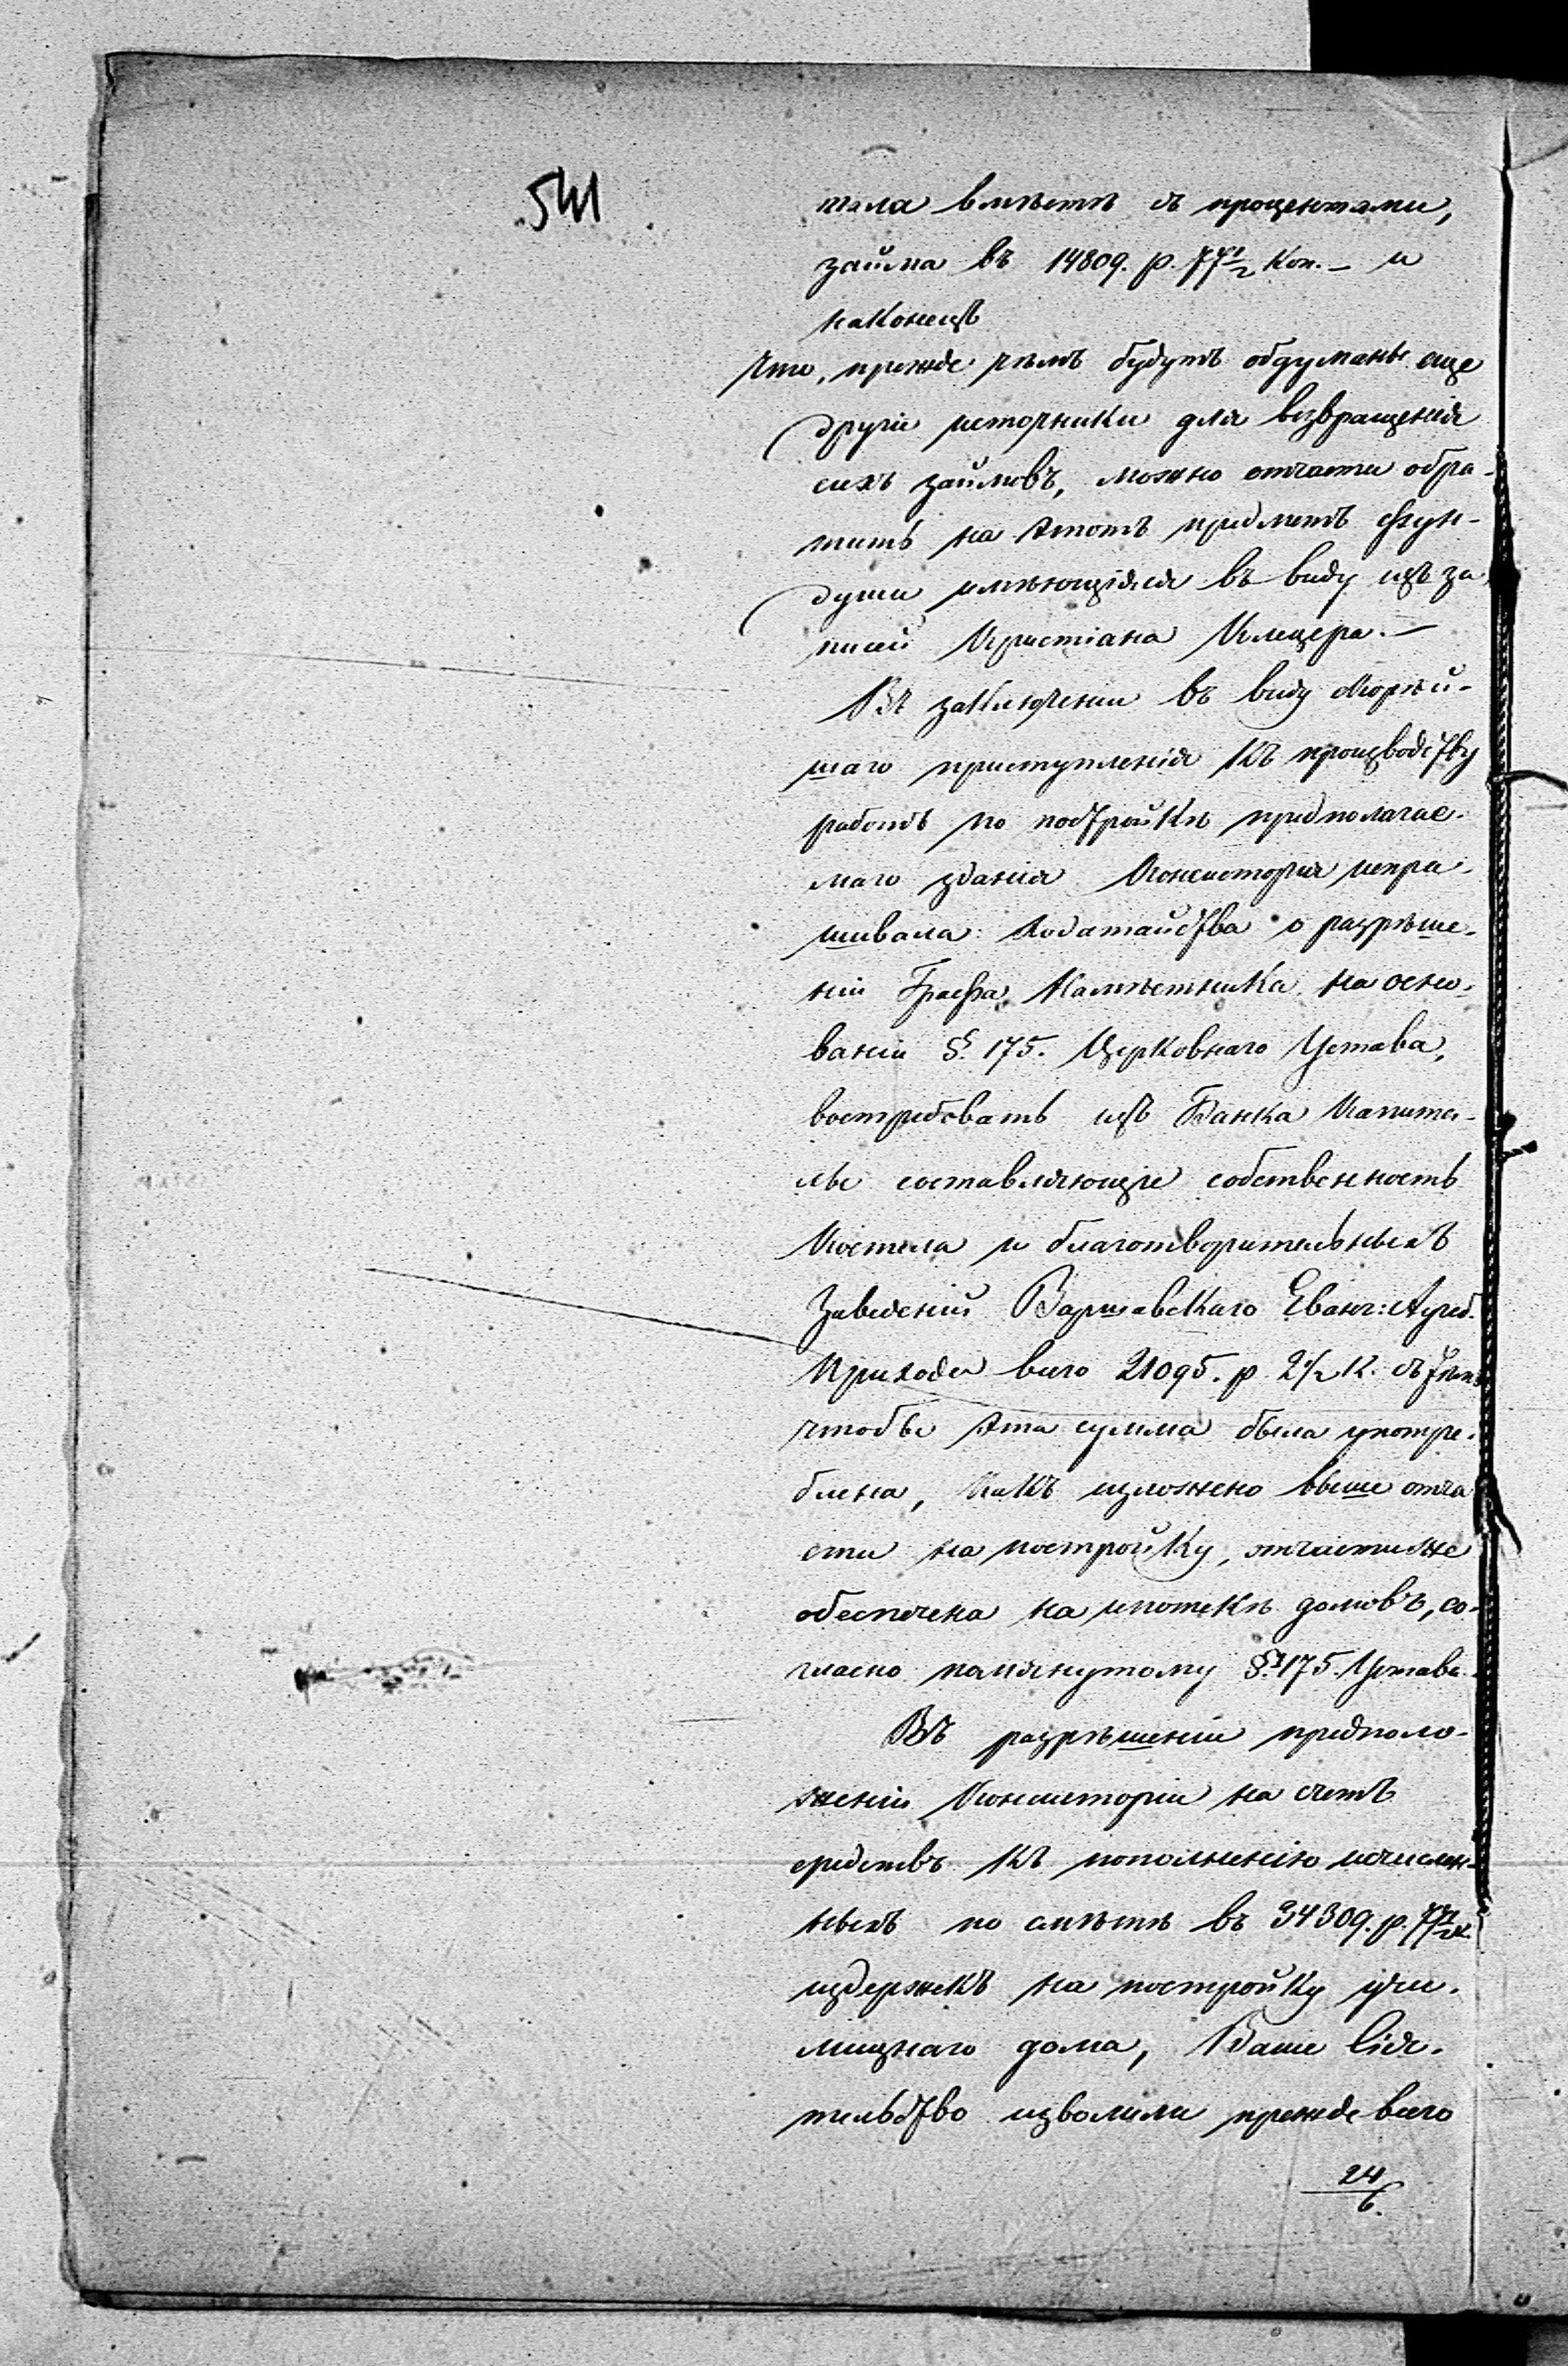 541
тала вмѣстѣ съ процентами,
займа въ 14809. р. 77 1/2 Коп. — и
наконецъ
что, прежде чѣмъ будутъ обдуманы еще
другіе источники для возвращенія
сихъ займовъ, можно отчасти обра-
тить на этотъ предметъ фун-
души имѣющіяся въ виду изъ за-
писей Христіана
Въ заключеніи въ виду скорѣй-
шаго приступленія къ производству
работъ по постройкѣ предполагае-
маго зданія Консисторія испра-
шивала: ходатайства о разрѣше-
ніи Графа Намѣстника на осно-
ваніи §. 175. Церковнаго Устава,
востребовать изъ Банка Капита-
лы составляющіе собственность
Костела и благотворительныхъ
Заведеній Варшавскаго Еванг: Аугсб.
Прихода всего 21095. р 2 1/2 К. съ тѣмъ
чтобы эта сумма была употре-
блена, какъ изложено выше отча-
сти на постройку, отчасти же
обеспечена на ипотекѣ домовъ, со-
гласно помянутому §. 175. Устава.
Въ разрѣшеніи предполо-
женій Консисторіи на счетъ
средствъ къ пополненію исчислен-
ныхъ по смѣтѣ въ 34309. р. 77 1/2 к.
издержекъ на постройку учи-
лищнаго дома, Ваше Сія-
тельство изволили прежде всего
24/6.